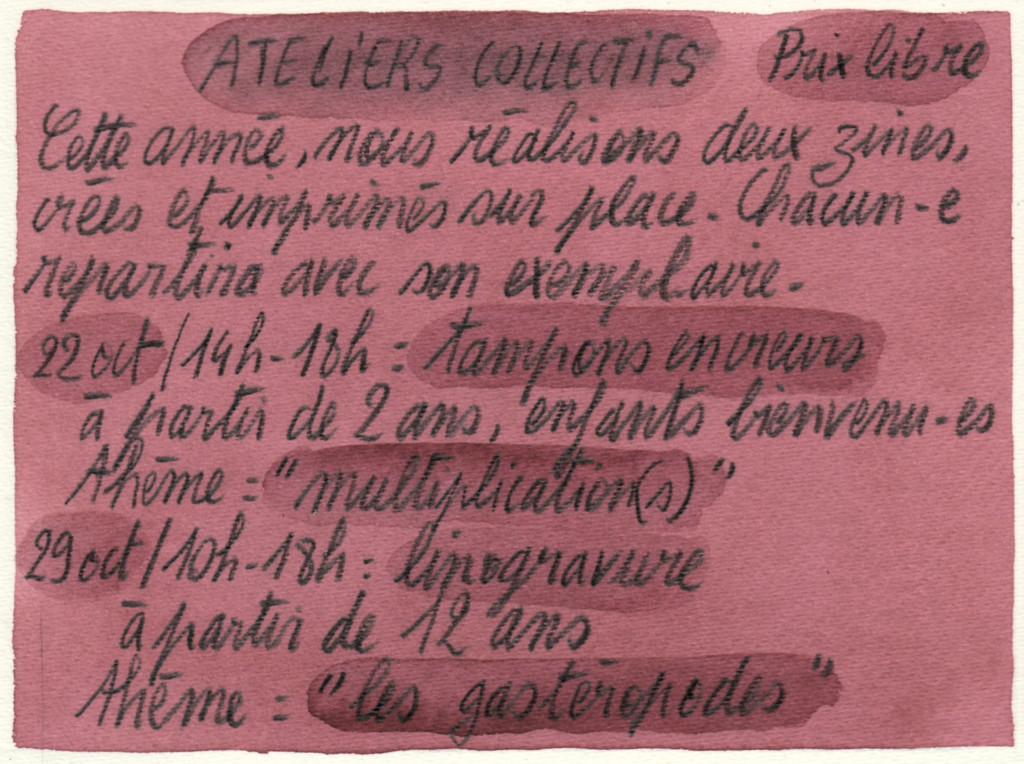 ATELIERS COLLECTIFS Prix libre
Cette année, nous réalisons deux zines,
créés et imprimés sur place. Chacun-e
repartira avec son exemplaire.
22 oct / 14h-18h : tampons encreurs
à partir de 2 ans, enfants bienvenu-es
Thème : "multiplication(s)"
29 oct / 10h-18h : linogravure
à partir de 12 ans
Thème : "les gastéropodes"